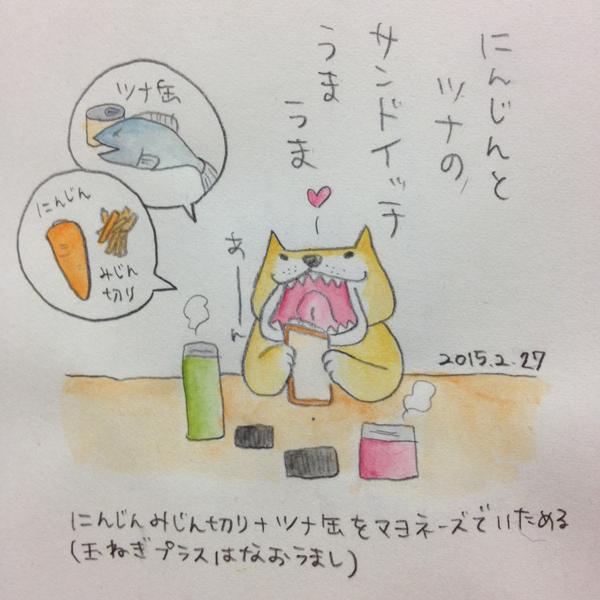 にんじんと
ツナの
サンドイッチ
うま
うま
ツナ缶
にんじん
みじん
切り
あーーん
2015.2.27
にんじんみじん切り+ツナ缶をマヨネーズでいためる
(玉ねぎプラスはなおうまし)